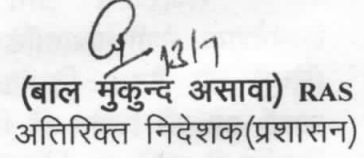 13/7
(बाल मुकुन्द असावा) RAS
अतिरिक्त निदेशक(प्रशासन)